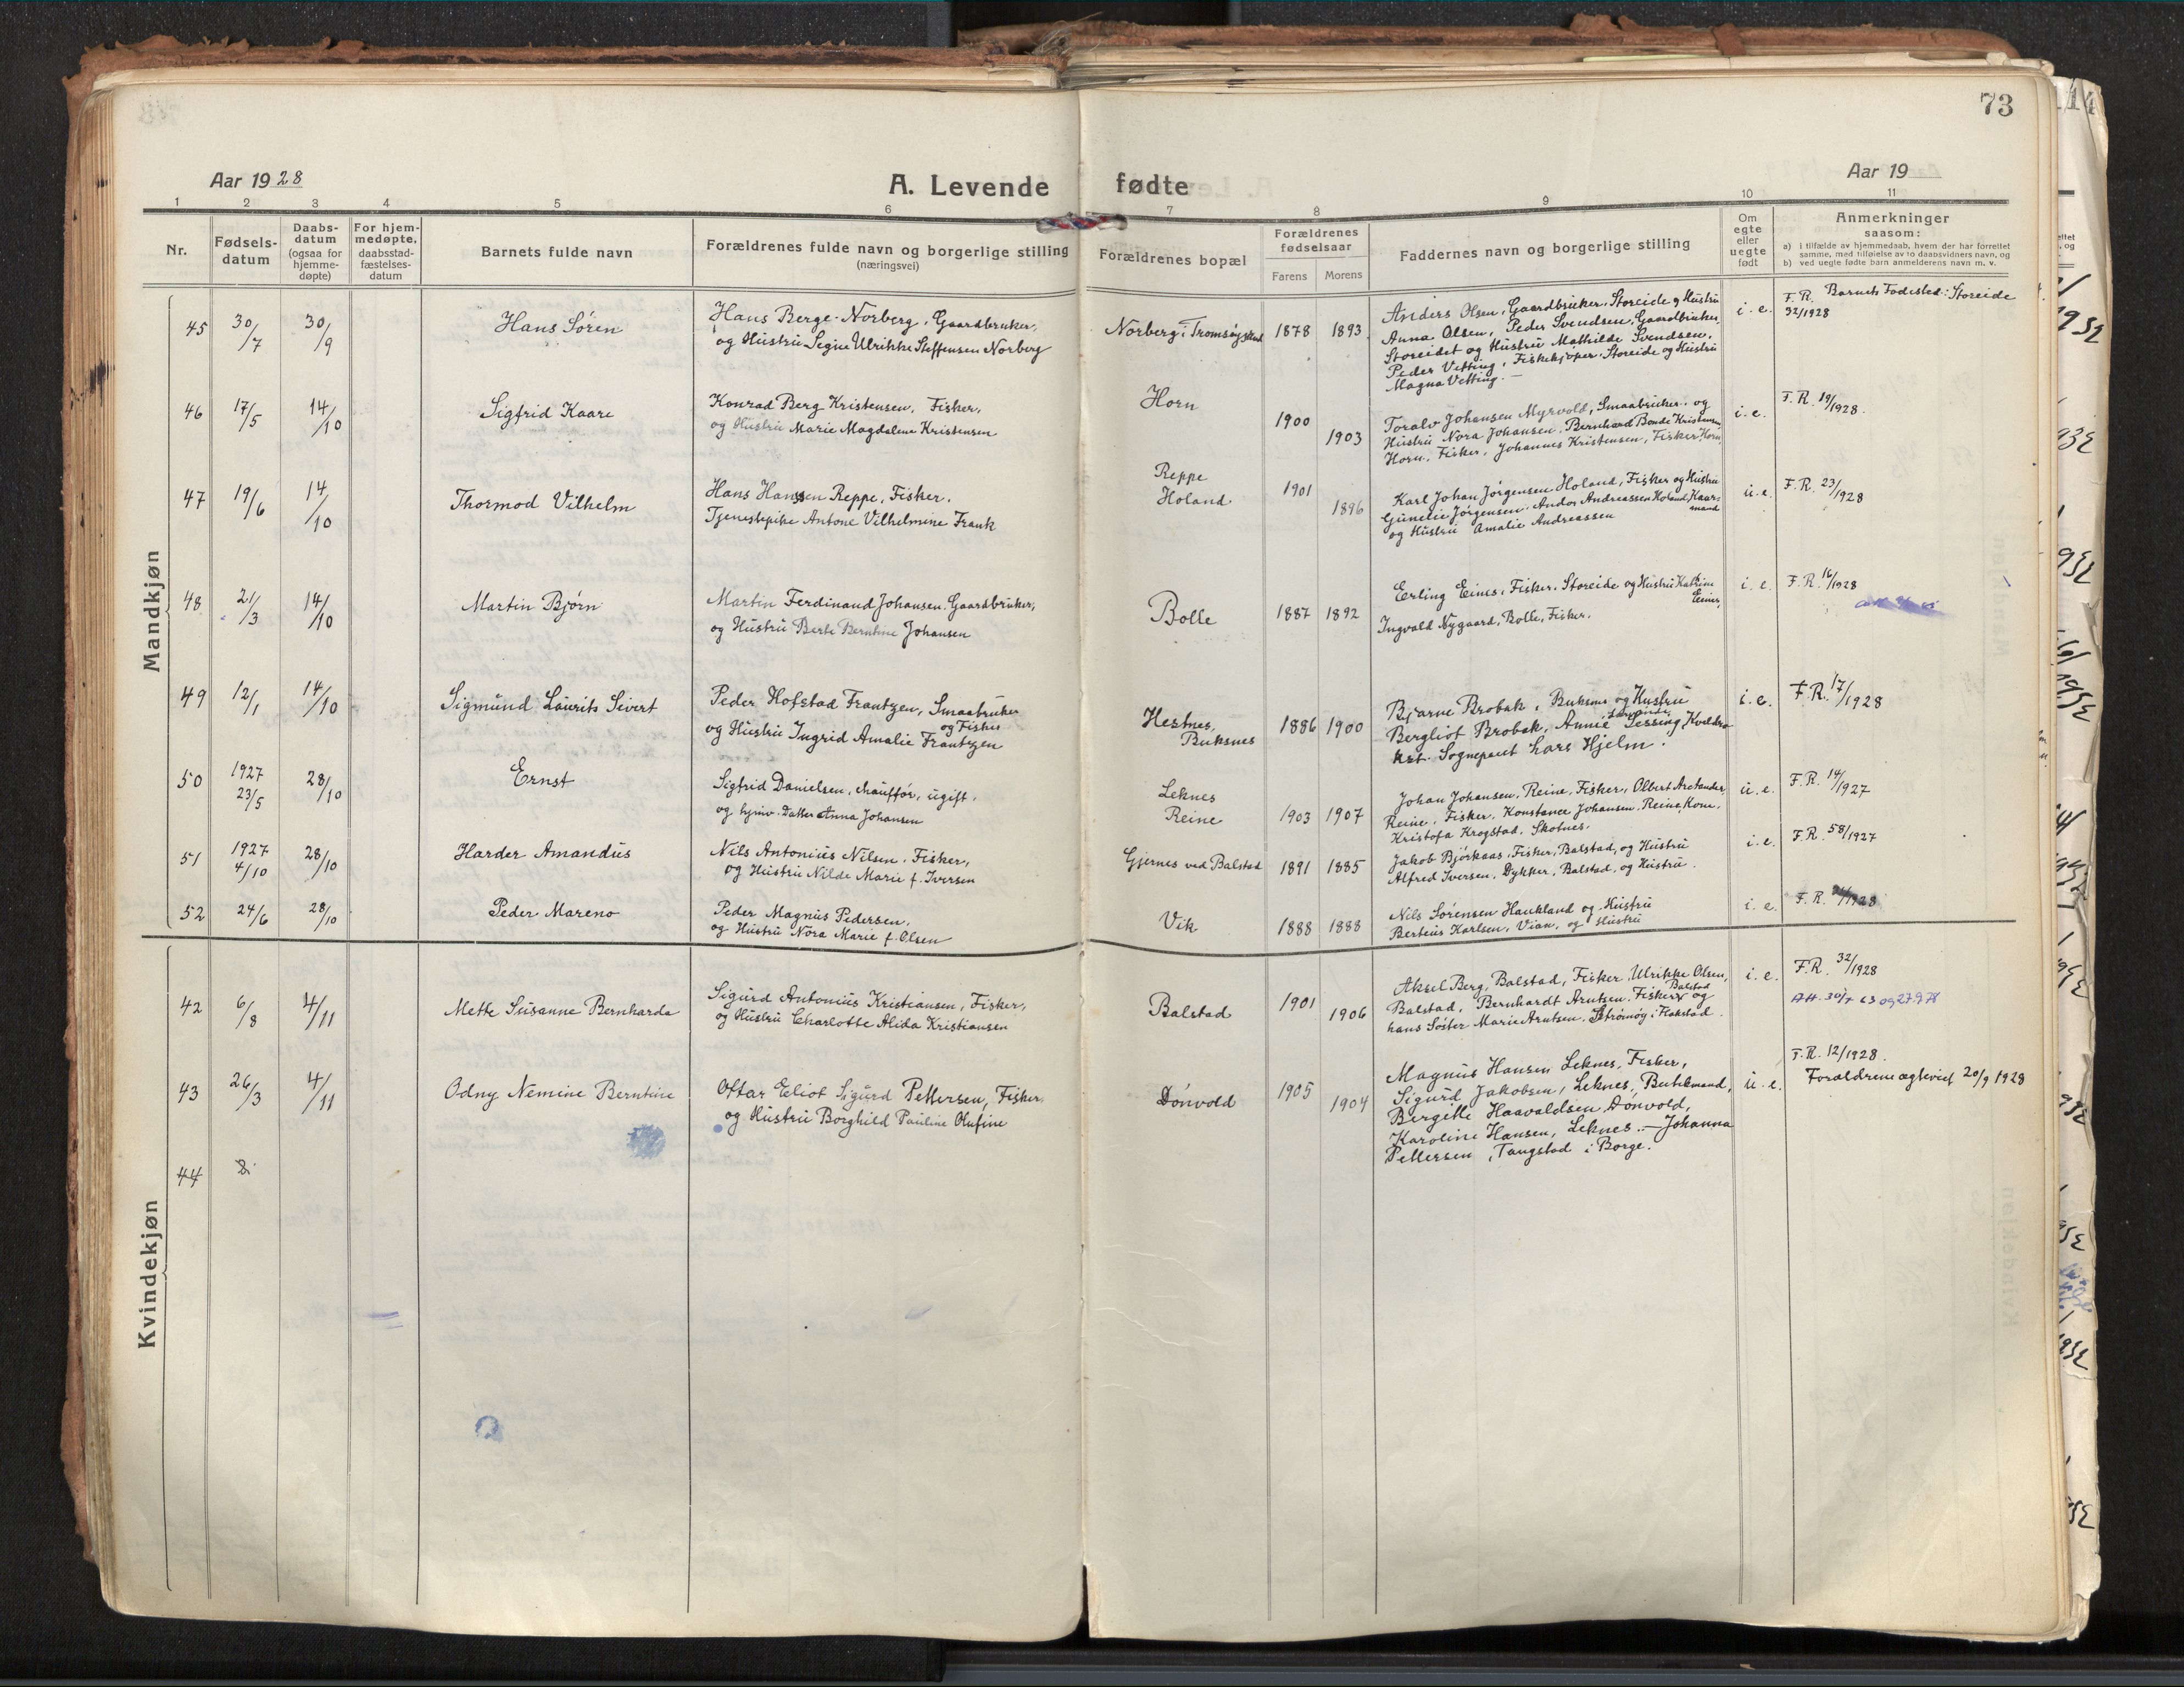 73
Aar 1928
A. Levende fødte
Aar 19
1 2 3 4 5 6 7 8 9 10 11
Nr.
Fødsels-
datum
Daabs-
datum
(ogsaa for
hjemme-
døpte)
For hjem-
medøpte,
daabsstad-
fæstelses-
datum
Barnets fulde navn
Forældrenes fulde navn og borgerlige stilling
(næringsvei)
Forældrenes bopæl
Forældrenes
fødselsaar
Farens Morens
Faddernes navn og borgerlige stilling
Om
egte
eller
uegte
født
Anmerkninger
saasom:
a) i tilfælde av hjemmedaab, hvem der har forrettet
samme, med tilføielse av to daabsvidners navn, og
b) ved uegte fødte barn anmelderens navn m. v.
Mandkjøn
45 30/7 30/9 Hans Sören
Hans Berge-Norberg, Gaardbruker,
og Hustru Segne Ulrikke Steffensen Norberg
Norberg i Tromsøysund 1878 1893
Anders Olsen, Gaardbruker, Storeide og Hustru
Anna Olsen, Peder Svendsen, Gaardbruker,
Storeidet og Hustru Mathilde Svendsen.
Peder Vetting, Fiskekjøper, Storeide og Hustru
Magna Vetting.
i. e.
F. R. Barnets Fødested: Storeide
32/1928
46 17/5 14/10 Sigfrid Kaare
Konrad Berg Kristensen, Fisker,
og Hustru Marie Magdalene Kristensen
Horn 1900 1903
Toralv Johansen Myrvold, Smaabruker, og
Hustru Nora Johansen, Bernhard Bonde Kristensen
Horn, Fisker, Johannes Kristensen, Fisker, Horn
i. e.
F. R. 19/1928.
47 19/6 14/10 Thormod Vilhelm
Hans Hanssen Reppe, Fisker.
Tjenestepike Antone Vilhelmine Frank
Reppe
Holand 1901 1896
Karl Johan Jörgensen Holand, Fisker og Hustru
Gunelie Jörgensen, Andor Andreassen Holand, Kaar-
mand
og Hustru Amalie Andreassen
u. e.
F. R. 23/1928
48 21/3 14/10 Martin Bjørn
Martin Ferdinand Johansen, Gaardbruker,
og Hustru Berte Berntine Johansen
Bolle 1887 1892
Erling Eines, Fisker, Storeide og Hustru Katrine
Eines,
Ingvald Nygaard, Bolle, Fisker.
i. e.
F. R. 16/1928
49 12/1 14/10 Sigmund Laurits Sivert
Peder Hofstad Frantzen, Smaabruker
og Fisker
og Hustru Ingrid Amalie Frantzen
Hestnes,
Buksnes 1886 1900
Bjarne Brobak, Buksnes og Hustru
Bergliot Brobak, Annie Sessing,
Sogneprest Lars Hjelm.
i. e.
F. R. 17/1928
50 1927 23/5 28/10 Ernst
Sigfrid Danielsen, chauffør, ugift,
og hjmv. Datter Anna Johansen
Leknes
Reine 1903 1907
Johan Johansen, Reine, Fisker, Olbert
Reine, Fisker, Konstance Johansen, Reine, Kone,
Kristofa Krogstad, Skotnes.
u. e.
F. R. 14/1927
51 1927 4/10 28/10 Harder Amandus
Nils Antonius Nilsen, Fisker,
og Hustru Nilde Marie f. Iversen
Gjernes ved Balstad 1891 1885
Jakob Bjørkaas, Fisker, Balstad, og Hustru
Alfred Iversen, Dykker, Balstad, og Hustru.
i. e.
F. R. 58/1927
52 24/6 28/10 Peder Mareno
Peder Magnus Pedersen,
og Hustru Nora Marie f. Olsen
Vik 1888 1888
Nils Sörensen Haukland og Hustru
Berteus Karlsen, Vian, og Hustru
i. e.
F. R. 1928
Kvindekjøn
42 6/8 4/11 Mette Susanne Bernharda
Sigurd Antonius Kristiansen, Fisker,
og Hustru Charlotte Alida Kristiansen
Balstad 1901 1906
Aksel Berg, Balstad, Fisker, Ulrikke Olsen,
Balstad, Bernhardt Arntsen, Fisker, Balstad og
hans Söster Marie Arntsen, Strömöy i Flakstad.
i. e.
F. R. 32/1928
Att. 30/7 63 og 27.9.78
43 26/3 4/11 Odny Nemine Berntine
Ottar Eliot Sigurd Pettersen, Fisker
og Hustru Borghild Pauline Olufine
Dönvold 1905 1904
Magnus Hansen Leknes, Fisker,
Sigurd Jakobsen, Leknes, Butikmand,
Bergitte Haavaldsen Dönvold,
Karoline Hansen, Leknes. — Johanna
Pettersen, Tangstad i Borge.
u. e.
F. R. 12/1928.
Forældrene egteviet 20/9 1928
44 8